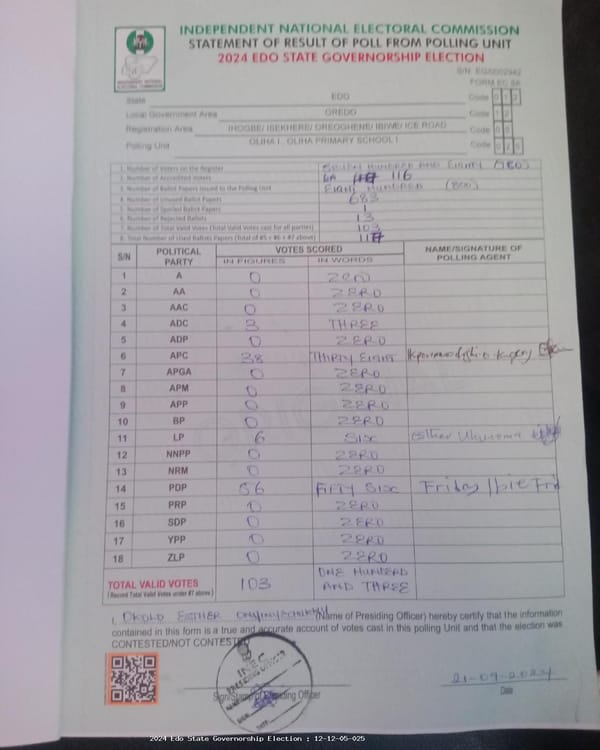 INDEPENDENT NATIONAL ELECTORAL COMMISSION
STATEMENT OF RESULT OF POLL FROM POLLING UNIT
2024 EDO STATE GOVERNORSHIP ELECTION
FORM EC 8A
State EDO Code 0 1 2
Local Government Area OREDO Code 1 2
Registration Area IHOGBE/ ISEKHERE/ OREOGHENE/ IBIWE/ ICE ROAD Code 0 5
Polling Unit OLIHA I, OLIHA PRIMARY SCHOOL I Code 0 2 5
1. Number of Voters on the Register SEVEN HUNDRED AND EIGHTY (780)
2. Number of Accredited Voters 116
3. Number of Ballot Papers Issued to the Polling Unit EIGHT HUNDRED (800)
4. Number of Unused Ballot Papers 683
5. Number of Spoiled Ballot Papers 1
6. Number of Rejected Ballots 13
7. Number of Total Valid Votes (Total Valid Votes cast for all parties) 103
8. Total Number of Used Ballots Papers (Total of #5 + #6 + #7 above) 117
S/N POLITICAL PARTY VOTES SCORED NAME/SIGNATURE OF POLLING AGENT
IN FIGURES IN WORDS
1 A 0 ZERO
2 AA 0 ZERO
3 AAC 0 ZERO
4 ADC 3 THREE
5 ADP 0 ZERO
6 APC 38 THIRTY EIGHT
7 APGA 0 ZERO
8 APM 0 ZERO
9 APP 0 ZERO
10 BP 0 ZERO
11 LP 6 SIX Esther
12 NNPP 0 ZERO
13 NRM 0 ZERO
14 PDP 56 FIFTY SIX Friday
15 PRP 0 ZERO
16 SDP 0 ZERO
17 YPP 0 ZERO
18 ZLP 0 ZERO
TOTAL VALID VOTES 103 ONE HUNDRED AND THREE
( Record Total Valid Votes under #7 above )
I, OKOLO ESTHER (Name of Presiding Officer) hereby certify that the information
contained in this form is a true and accurate account of votes cast in this polling Unit and that the election was
CONTESTED/NOT CONTESTED
INEC
PRESIDING OFFICER
21-09-2024
Sign/Stamp of Presiding Officer Date
2024 Edo State Governorship Election : 12-12-05-025